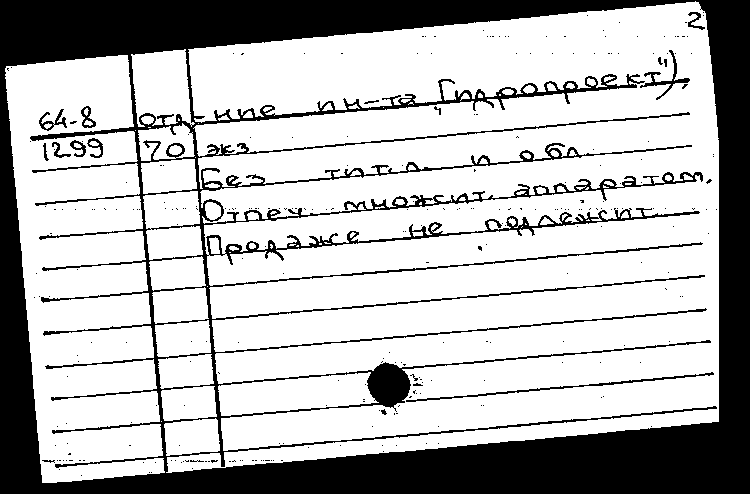 2
64-8 отд-ние ин-та „Гидропроект"),
1299 70 экз.
Без тит.л. и обл.
Отпеч. множит. аппаратом.
Продаже не подлежит.